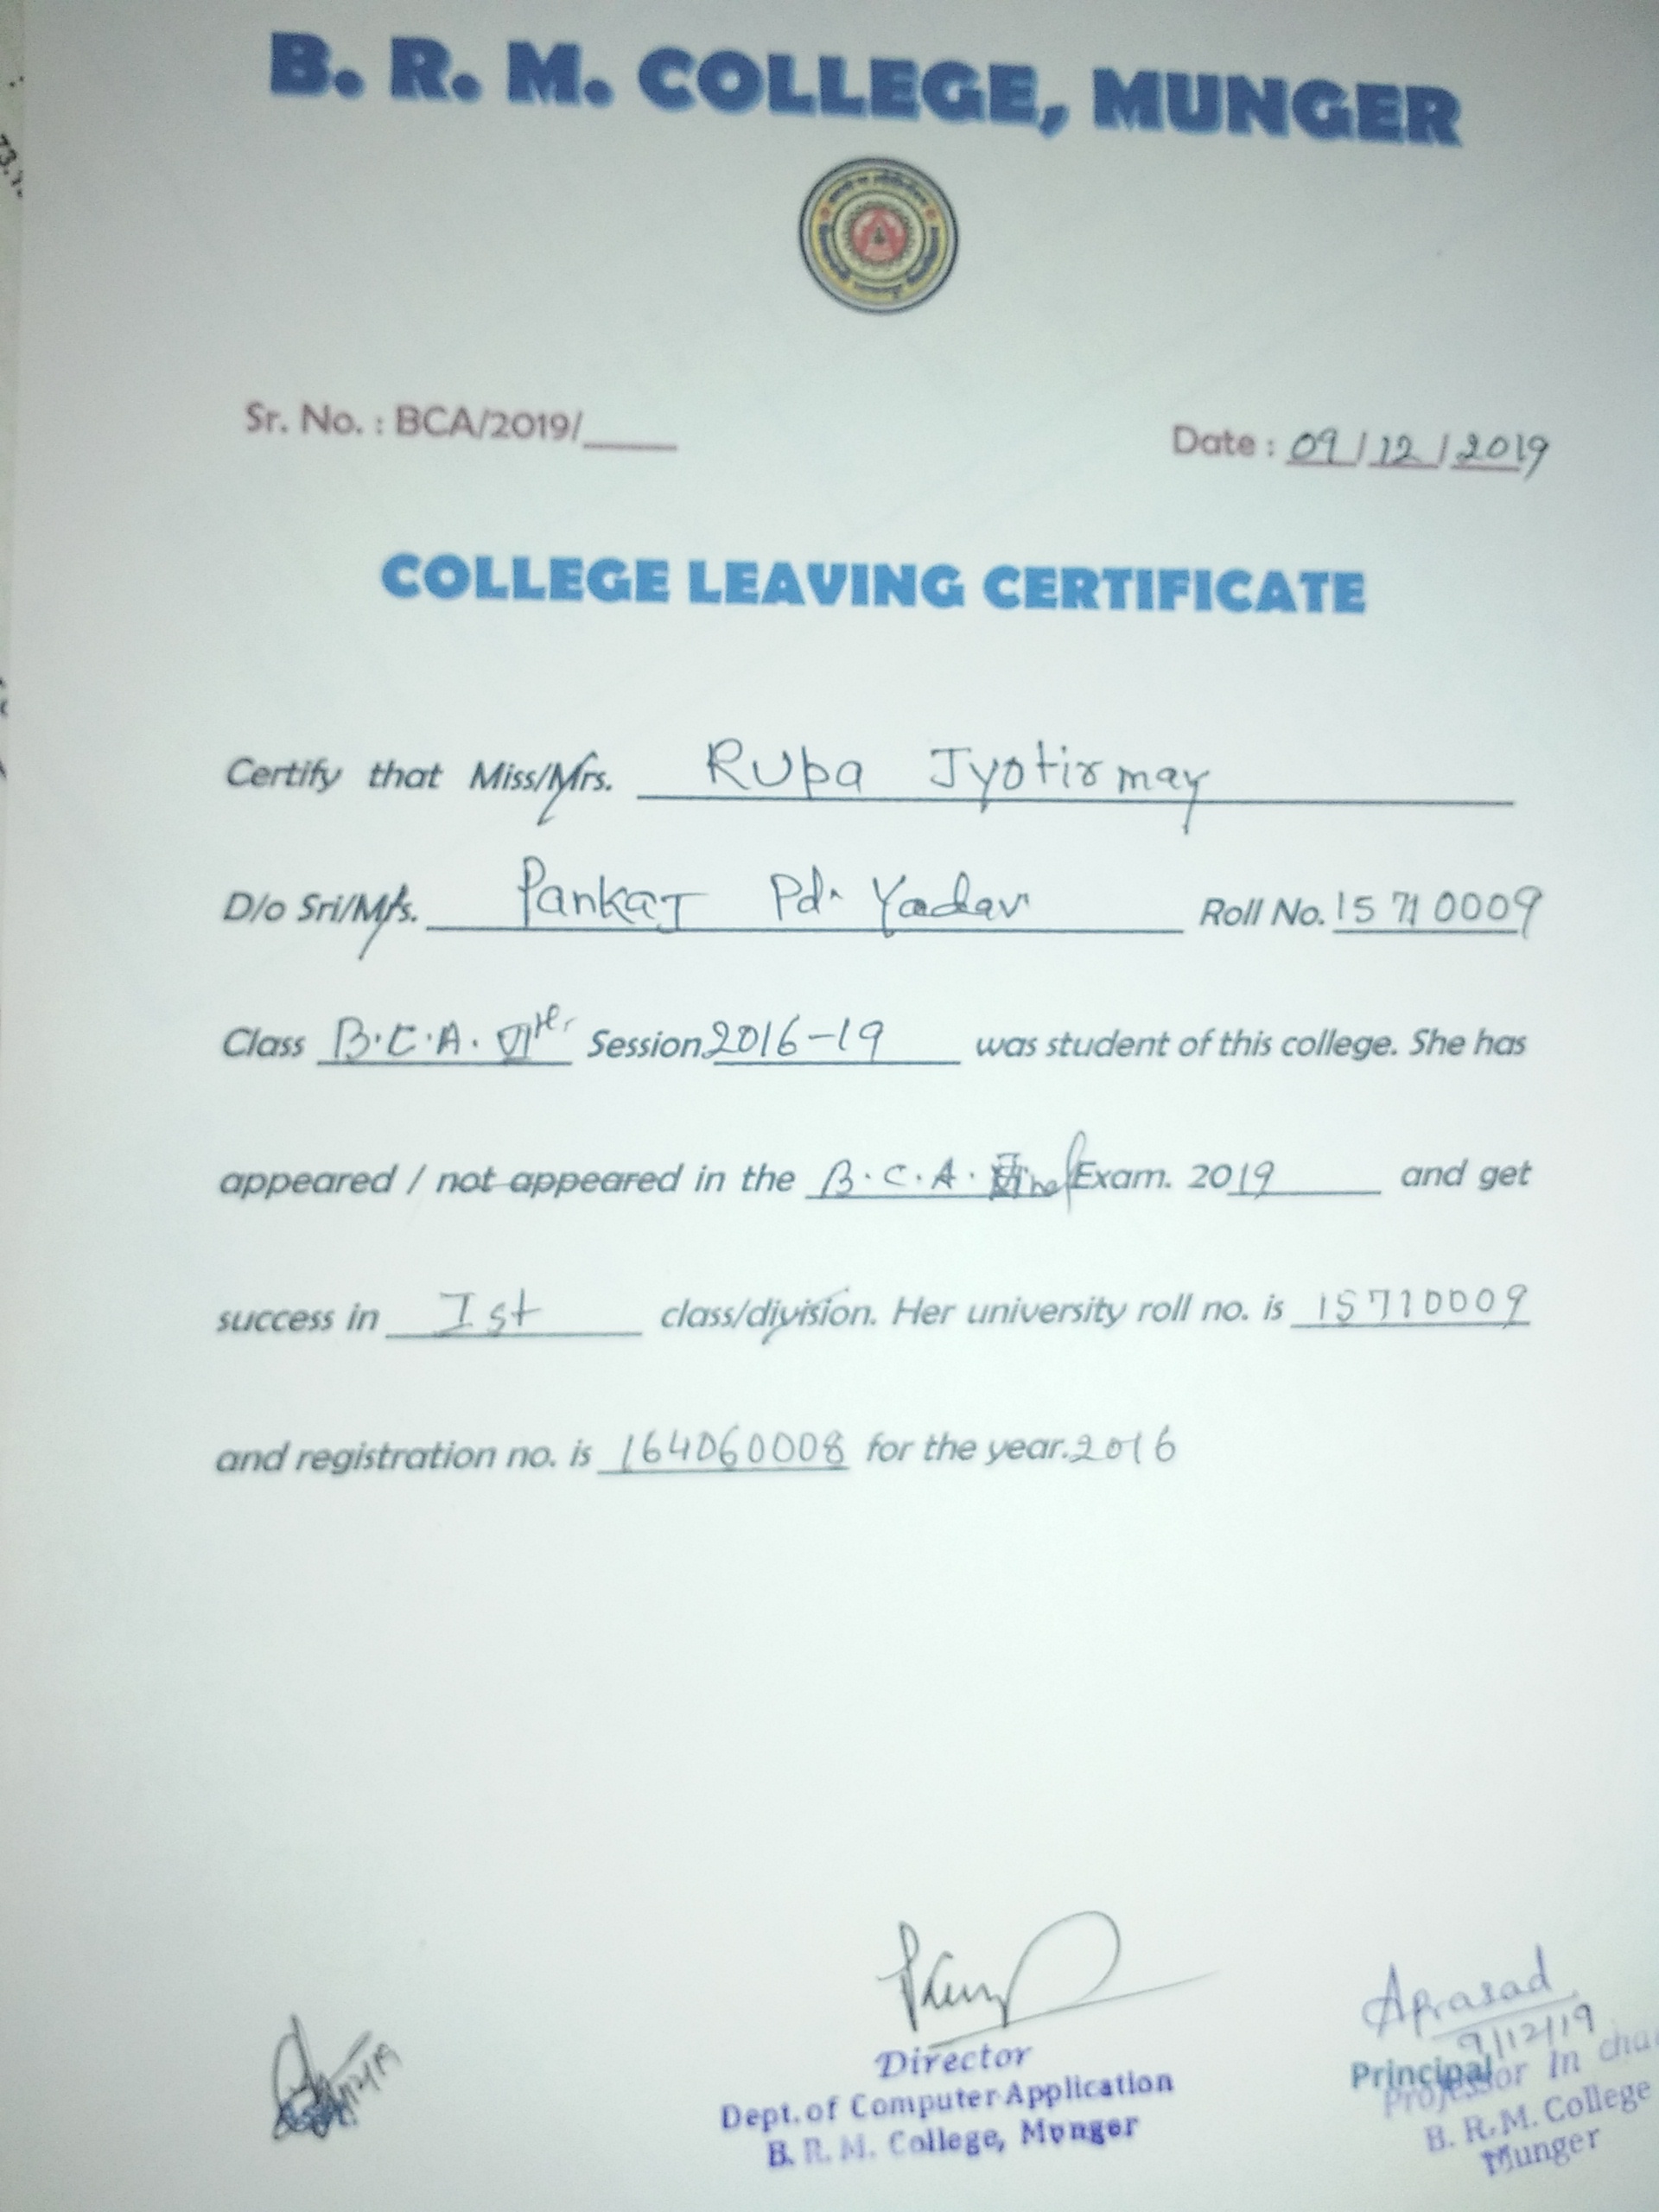 B. R. M. COLLEGE, MUNGER
Sr. No. : BCA/2019/____ Date : 09/12/2019
COLLEGE LEAVING CERTIFICATE
Certify that Miss/Mrs. Rupa Jyotirmay
D/o Sri/Mrs. Pankaj Pd. Yadav Roll No. 15710009
Class B.C.A. VIth Session 2016-19 was student of this college. She has
appeared / not appeared in the B.C.A. Final Exam. 2019 and get
success in Ist class/division. Her university roll no. is 15710009
and registration no. is 164060008 for the year. 2016
Aprasad
9/12/19
Director
Dept. of Computer Application
B. R. M. College, Munger
Principal
Professor In
B. R. M. College
Munger